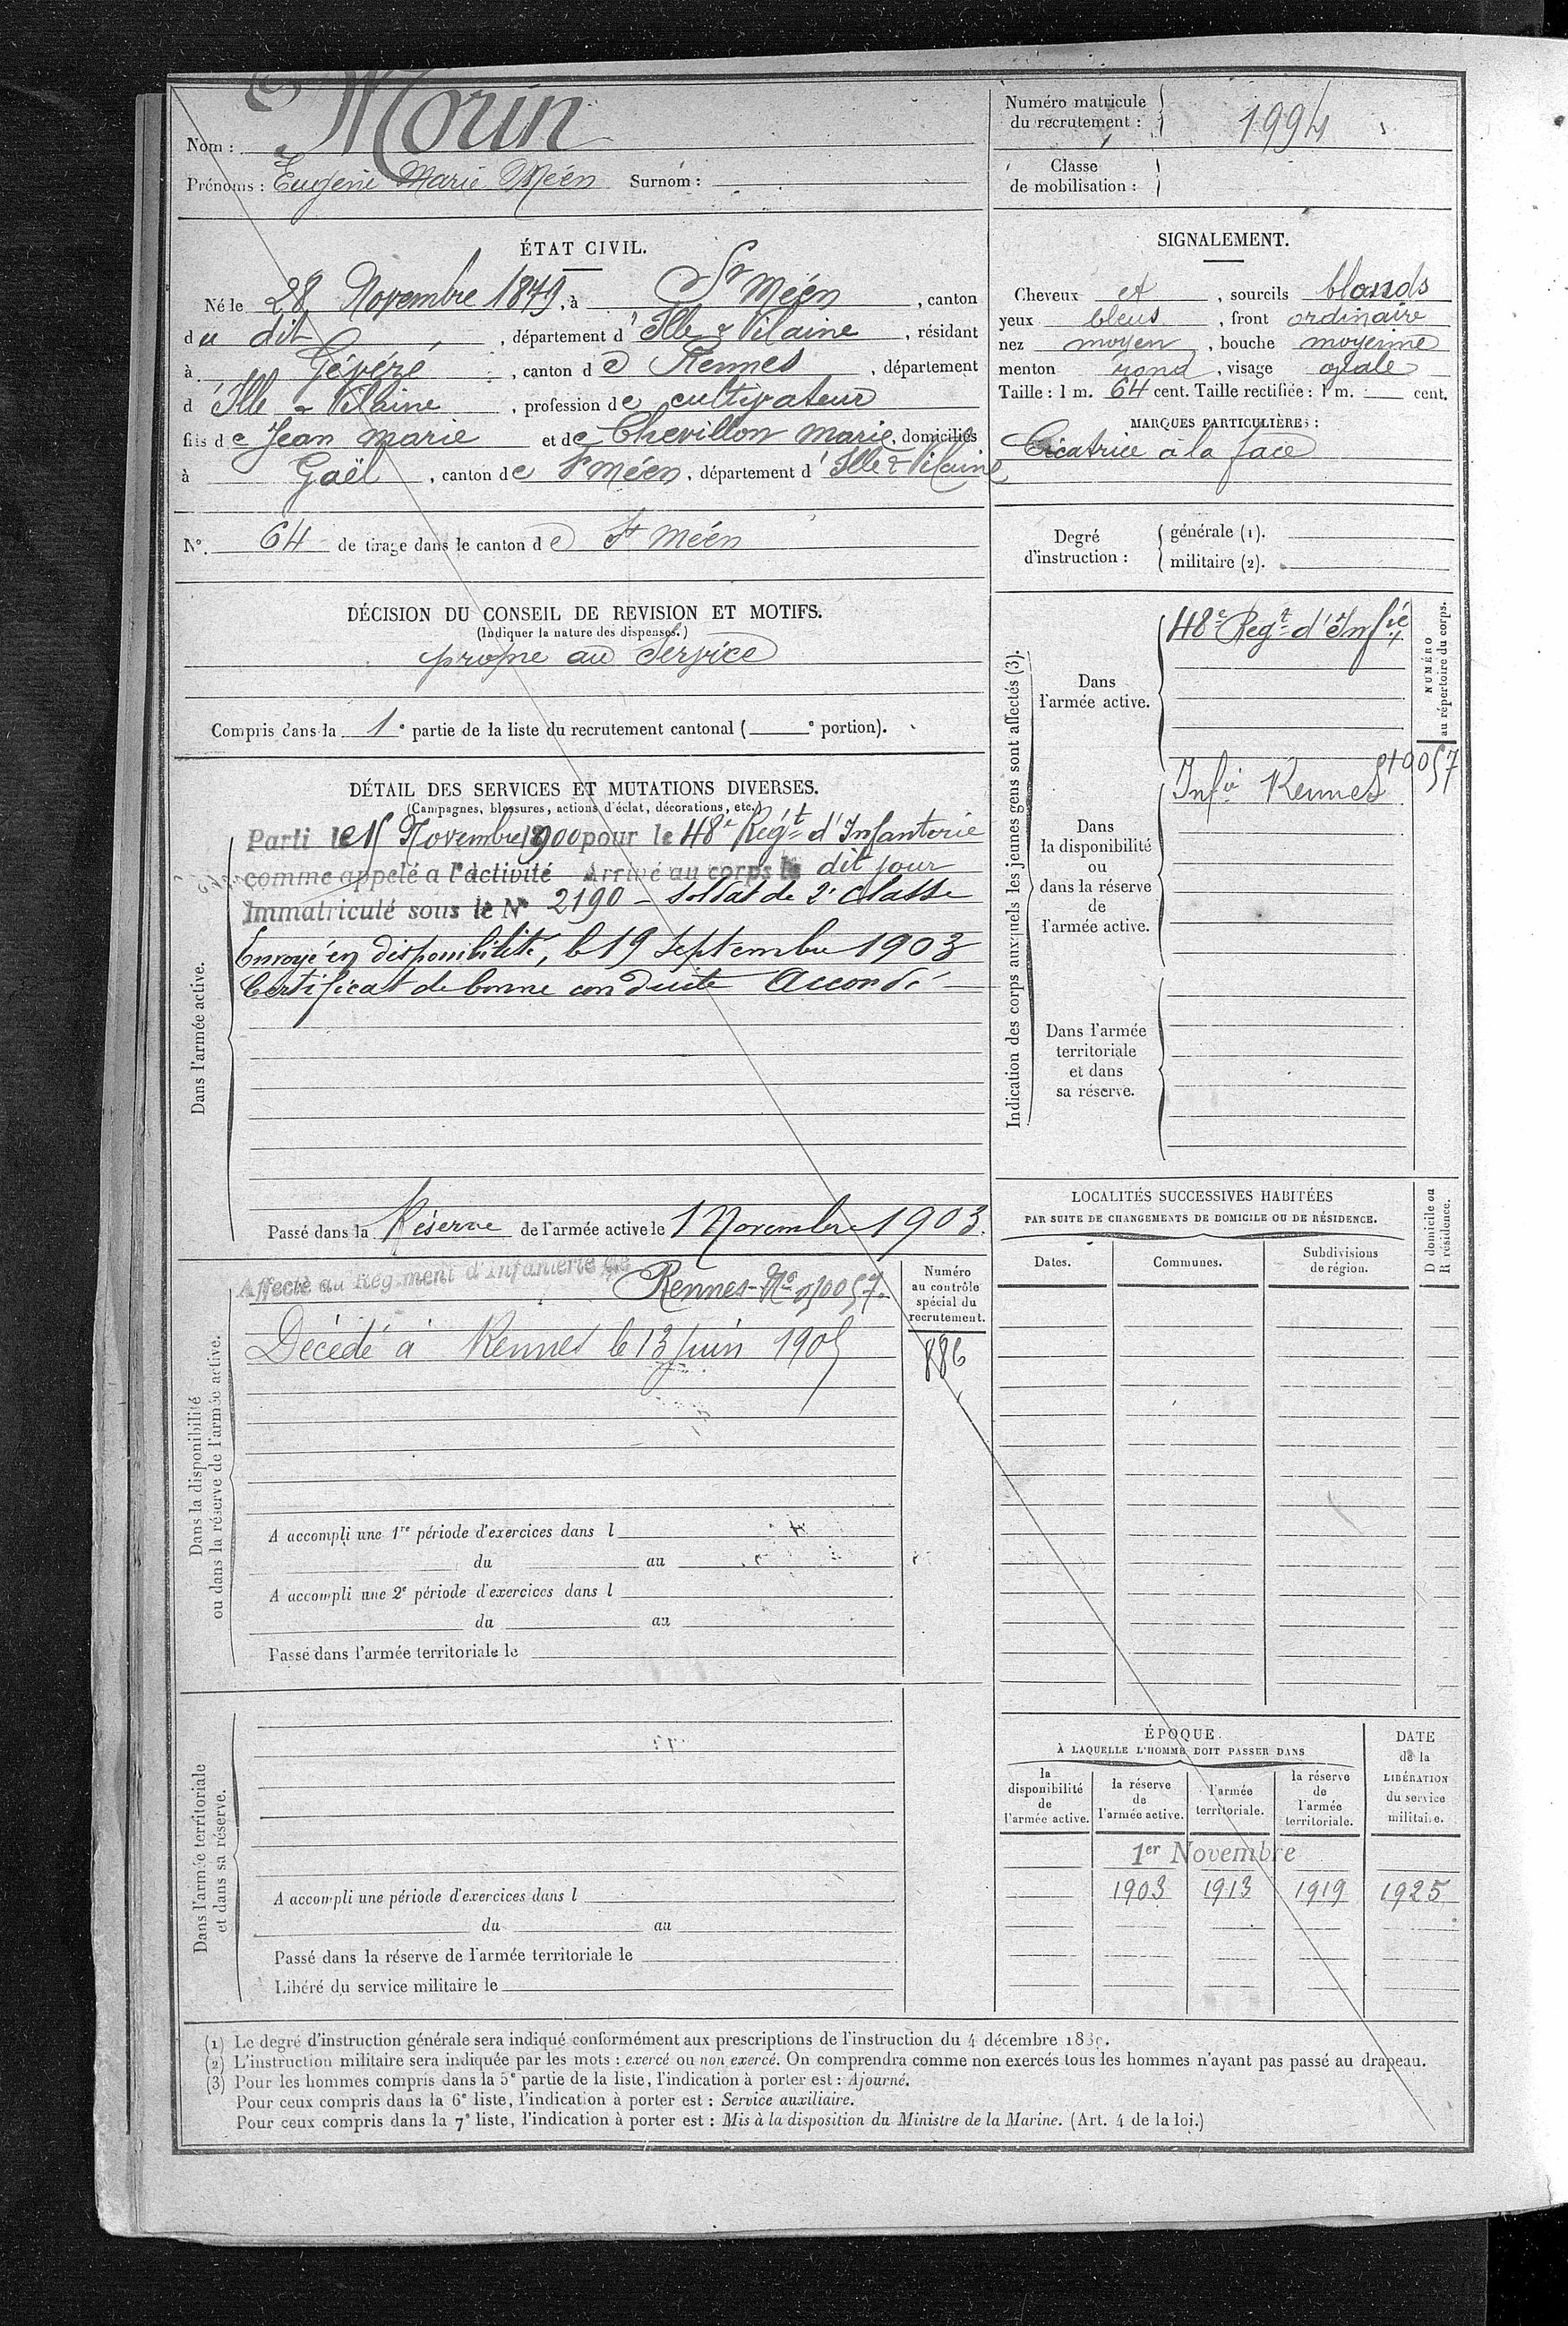 Nom : Morin
Prénoms : Eugène Marie Méen Surnom :
Numéro matricule du recrutement : 1994
Classe de mobilisation :
ÉTAT CIVIL.
Né le 28 Novembre 1879, à St Méen, canton
du dit, département d'Ille & Vilaine, résidant
à Gévézé, canton de Rennes, département
d'Ille & Vilaine, profession de cultivateur
fils de Jean marie et de Chevillon marie, domiciliés
à Gaël, canton de St Méen, département d'Ille & Vilaine
N° 64 de tirage dans le canton de St Méen
SIGNALEMENT.
Cheveux et, sourcils blonds
yeux bleus, front ordinaire
nez moyen, bouche moyenne
menton rond, visage ovale
Taille : 1 m. 64 cent. Taille rectifiée : 1 m. cent.
MARQUES PARTICULIÈRES :
Cicatrice à la face
Degré d'instruction :
générale (1).
militaire (2).
DÉCISION DU CONSEIL DE REVISION ET MOTIFS.
(Indiquer la nature des dispenses.)
propre au service
Compris dans la 1e partie de la liste du recrutement cantonal ( e portion).
DÉTAIL DES SERVICES ET MUTATIONS DIVERSES.
(Campagnes, blessures, actions d'éclat, décorations, etc.)
Dans l'armée active.
Parti le 15 Novembre 1900 pour le 48e Régt d'Infanterie
comme appelé a l'activité Arrivé au corps le dit jour
Immatriculé sous le N° 2190 - soldat de 2e classe
Envoyé en disponibilité, le 19 septembre 1903
Certificat de bonne conduite Accordé
Passé dans la Réserve de l'armée active le 1 Novembre 1903.
Indication des corps auxquels les jeunes gens sont affectés (3).
NUMÉRO au répertoire du corps.
Dans l'armée active.
48e Regt d'Infie
Dans la disponibilité ou dans la réserve de l'armée active.
Infie Rennes
Dans l'armée territoriale et dans sa réserve.
Dans la disponibilité ou dans la réserve de l'armée active.
Affecté au Régiment d'Infanterie de Rennes - No
Décédé à Rennes le 13 Juin 1905
Numéro au contrôle spécial du recrutement.
886
A accompli une 1re période d'exercices dans l
du au
A accompli une 2e période d'exercices dans l
du au
Passé dans l'armée territoriale le
LOCALITÉS SUCCESSIVES HABITÉES
PAR SUITE DE CHANGEMENTS DE DOMICILE OU DE RÉSIDENCE.
D domicile ou R résidence.
Dates. Communes. Subdivisions de région.
Dans l'armée territoriale et dans sa réserve.
A accompli une période d'exercices dans l
du au
Passé dans la réserve de l'armée territoriale le
Libéré du service militaire le
ÉPOQUE
À LAQUELLE L'HOMME DOIT PASSER DANS
la disponibilité de l'armée active.
la réserve de l'armée active.
l'armée territoriale.
la réserve de l'armée territoriale.
DATE de la LIBÉRATION du service militaire.
1er Novembre
1903 1913 1919 1925
(1) Le degré d'instruction générale sera indiqué conformément aux prescriptions de l'instruction du 4 décembre
(2) L'instruction militaire sera indiquée par les mots : exercé ou non exercé. On comprendra comme non exercés tous les hommes n'ayant pas passé au drapeau.
(3) Pour les hommes compris dans la 5e partie de la liste, l'indication à porter est : Ajourné.
Pour ceux compris dans la 6e liste, l'indication à porter est : Service auxiliaire.
Pour ceux compris dans la 7e liste, l'indication à porter est : Mis à la disposition du Ministre de la Marine. (Art. 4 de la loi.)